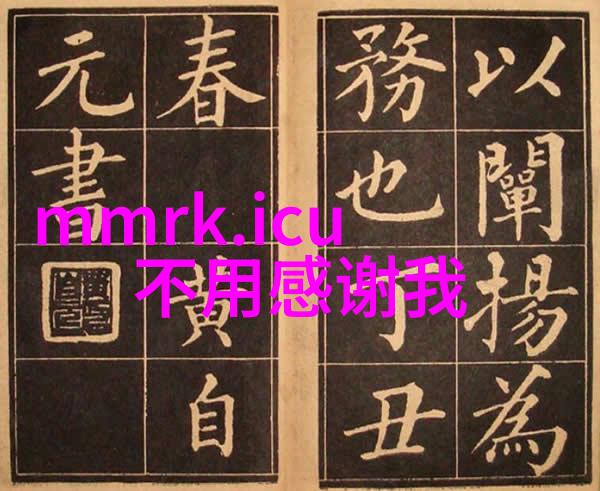 以闡揚為
務也丁丑
春 黃自
元書
mmrk.icu
不用感谢我